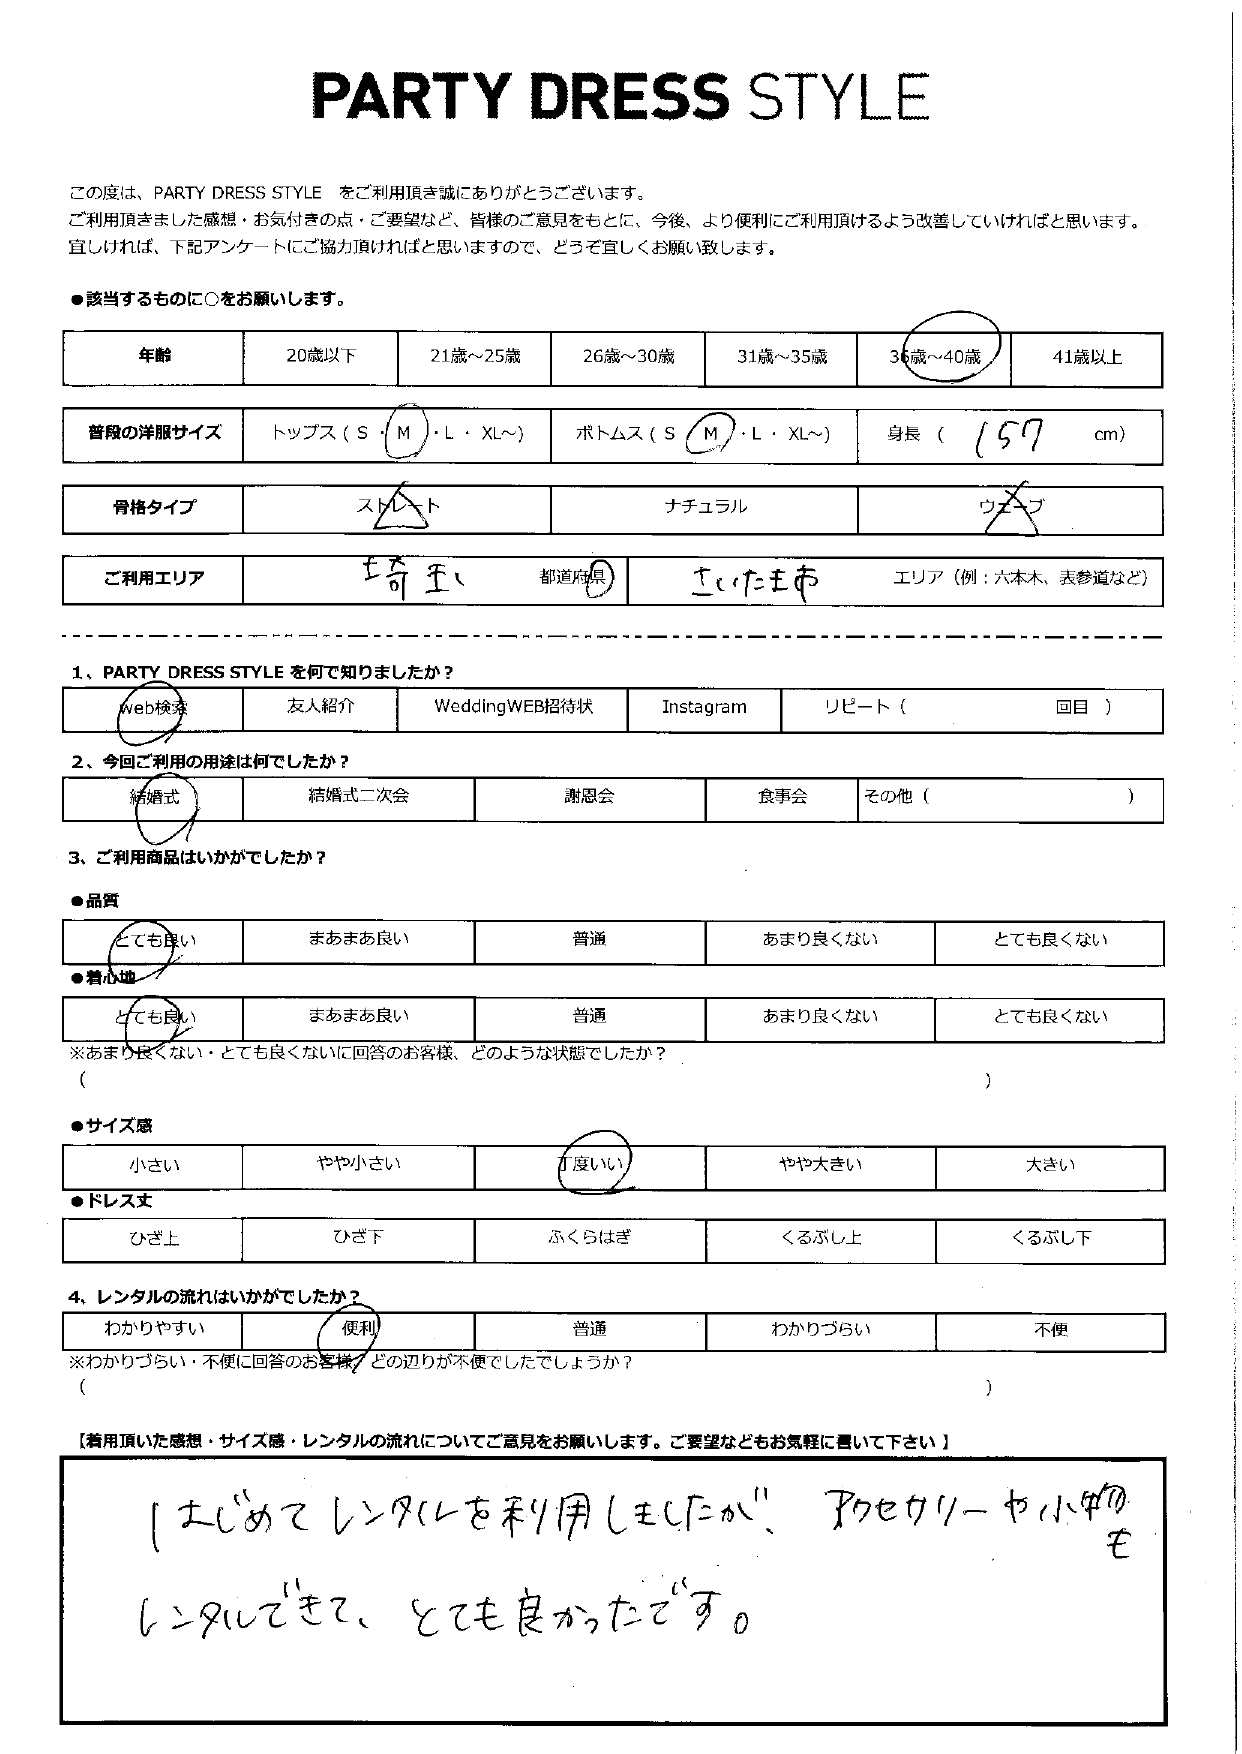 PARTY DRESS STYLE
この度は、PARTY DRESS STYLE をご利用頂き誠にありがとうございます。
ご利用頂きました感想・お気付きの点・ご要望など、皆様のご意見をもとに、今後、より便利にご利用頂けるよう改善していければと思います。
宜しければ、下記アンケートにご協力頂ければと思いますので、どうぞ宜しくお願い致します。
●該当するものに○をお願いします。
年齢 20歳以下 21歳～25歳 26歳～30歳 31歳～35歳 36歳～40歳 41歳以上
普段の洋服サイズ トップス ( S ・ M ・ L ・ XL～) ボトムス ( S ・ M ・ L ・ XL～) 身長 ( 157 cm)
骨格タイプ ストレート ナチュラル ウェーブ
ご利用エリア 埼玉 都道府県 さいたま市 エリア（例：六本木、表参道など）
1、PARTY DRESS STYLE を何で知りましたか？
Web検索 友人紹介 WeddingWEB招待状 Instagram リピート（ 回目 ）
2、今回ご利用の用途は何でしたか？
結婚式 結婚式二次会 謝恩会 食事会 その他（ ）
3、ご利用商品はいかがでしたか？
●品質
とても良い まあまあ良い 普通 あまり良くない とても良くない
●着心地
とても良い まあまあ良い 普通 あまり良くない とても良くない
※あまり良くない・とても良くないに回答のお客様、どのような状態でしたか？
( )
●サイズ感
小さい やや小さい 丁度いい やや大きい 大きい
●ドレス丈
ひざ上 ひざ下 ふくらはぎ くるぶし上 くるぶし下
4、レンタルの流れはいかがでしたか？
わかりやすい 便利 普通 わかりづらい 不便
※わかりづらい・不便に回答のお客様、どの辺りが不便でしたでしょうか？
( )
【着用頂いた感想・サイズ感・レンタルの流れについてご意見をお願いします。ご要望などもお気軽に書いて下さい 】
はじめてレンタルを利用しましたが、アクセサリーや小物も
レンタルできて、とても良かったです。